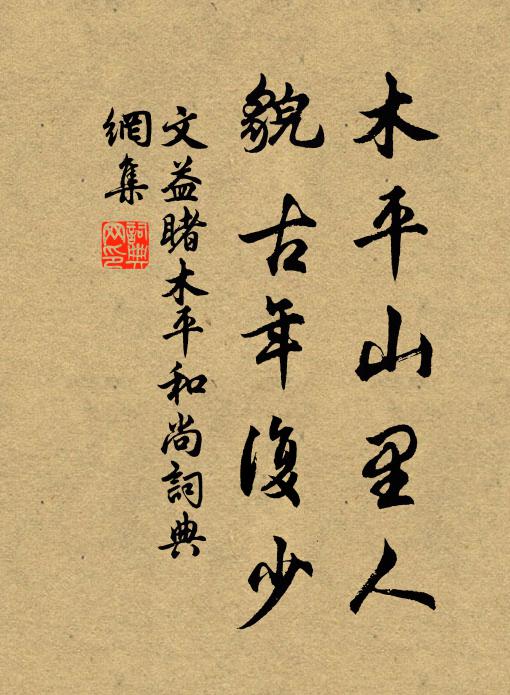 木平山里人
貌古年復少
文益睹木平和尚詞典
網集
詞典
网印